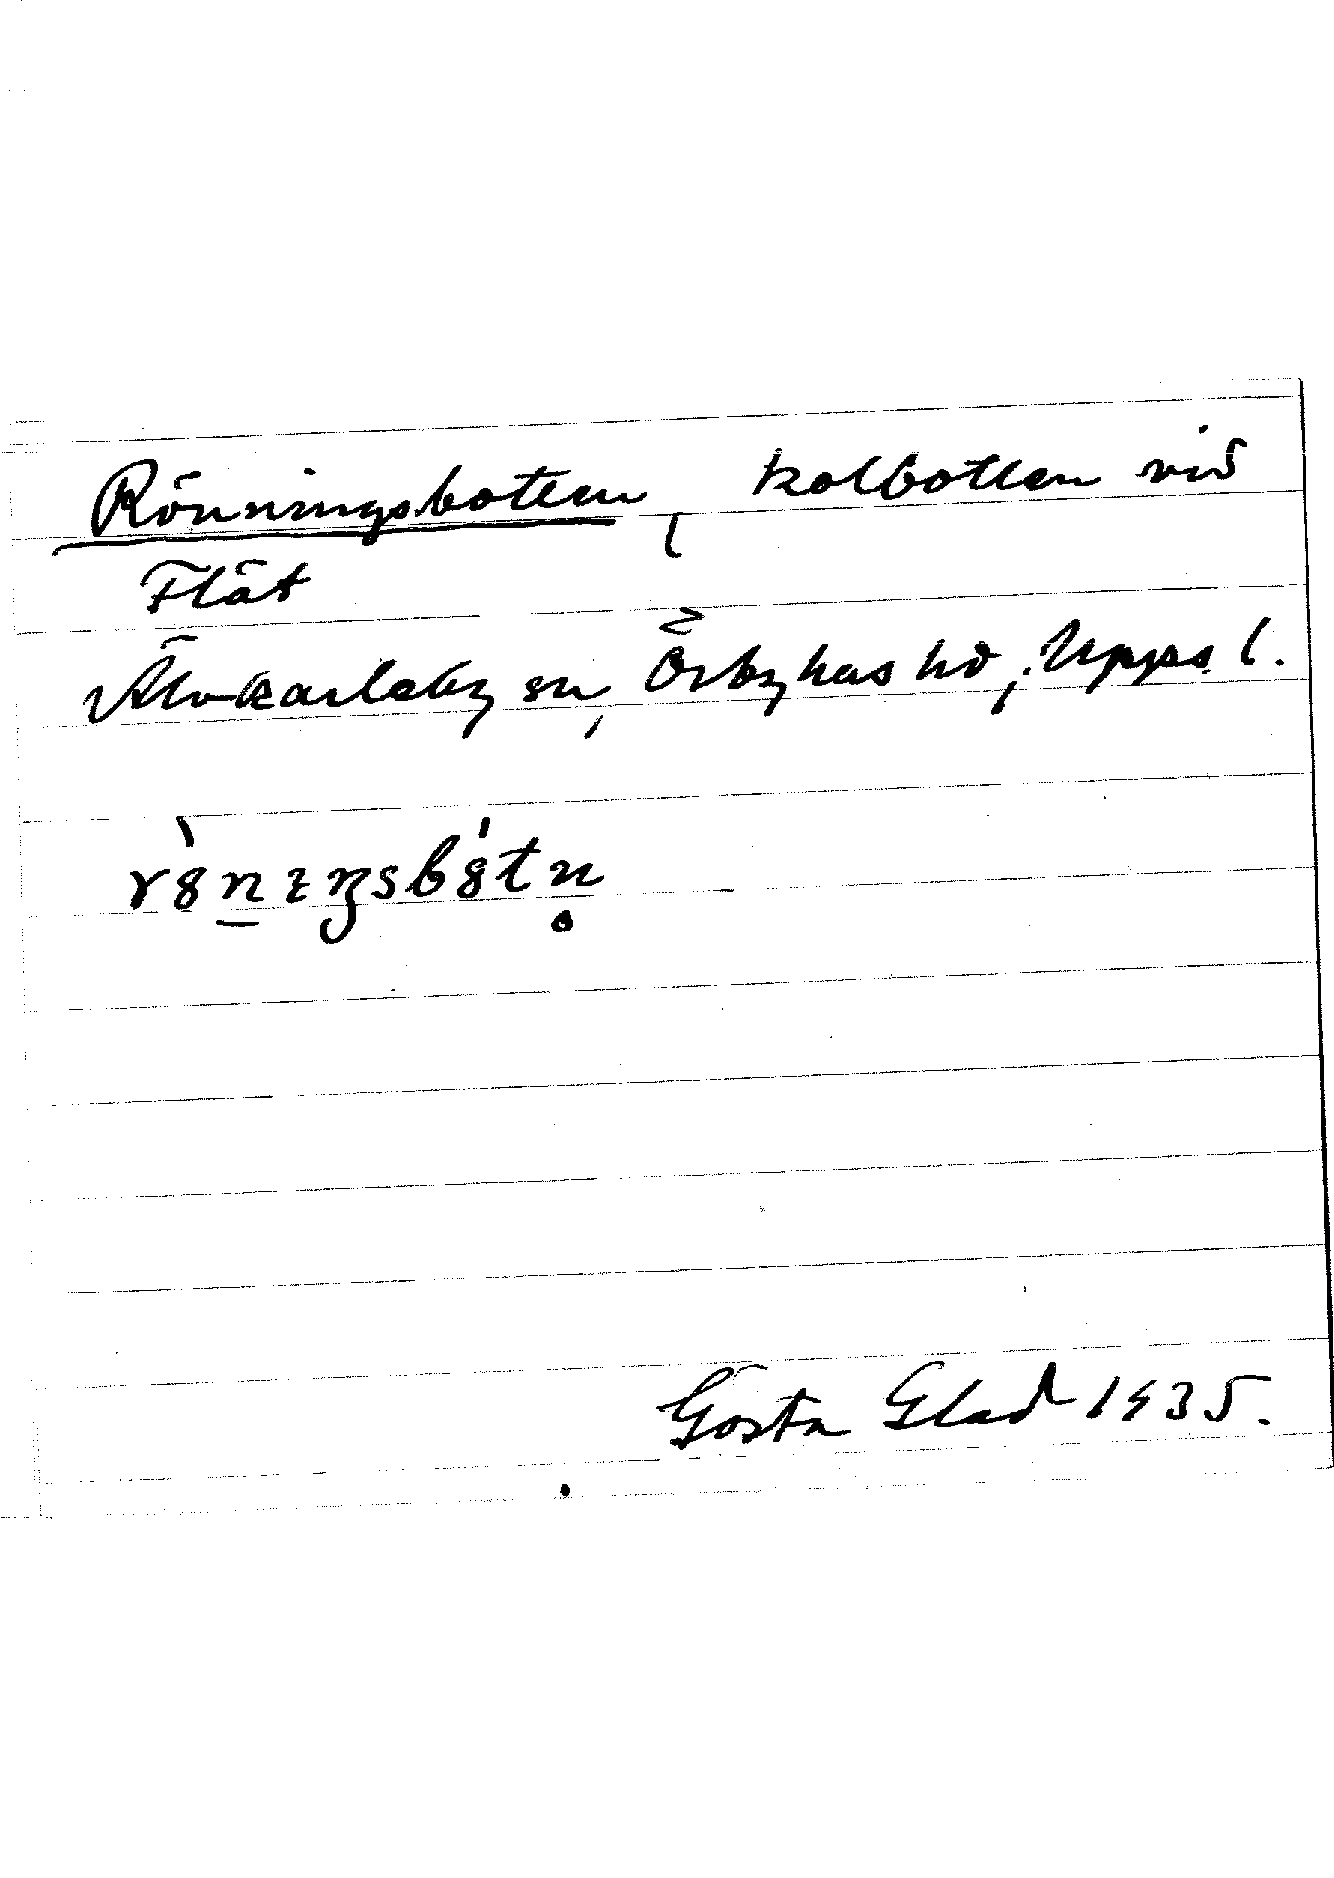 Rönningsbotten, kolbotten vid
Flät
Älvkarleby sn, Örbyhus hd, Upps. l.
rö̀nɪŋsbötn̥
Gösta Glad 1935.